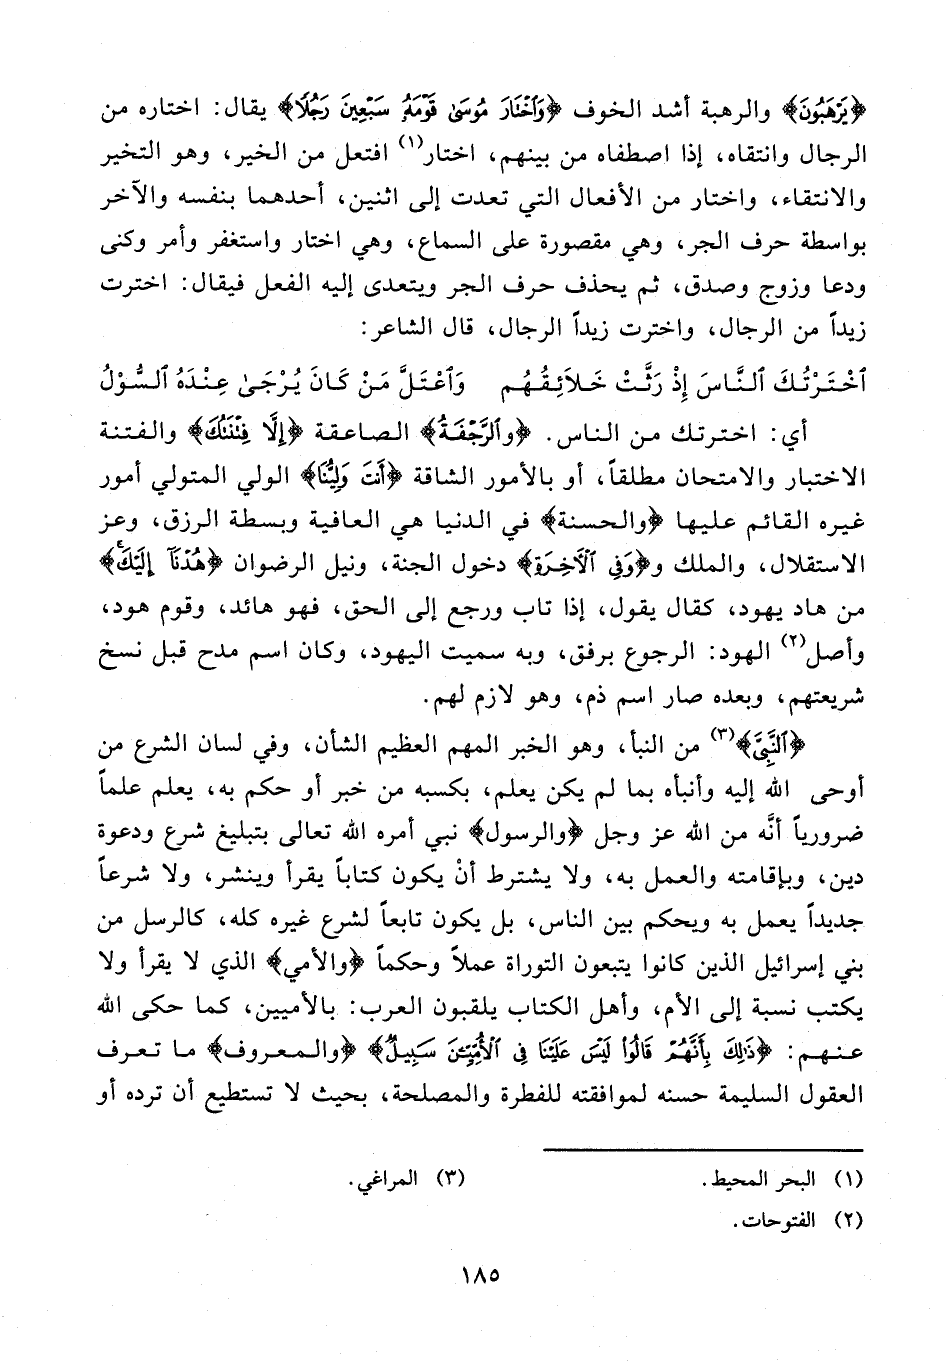 ﴿يَرْهَبُونَ﴾ والرهبة أشد الخوف ﴿وَٱخْتَارَ مُوسَىٰ قَوْمَهُۥ سَبْعِينَ رَجُلًا﴾ يقال: اختاره من
الرجال وانتقاه، إذا اصطفاه من بينهم، اختار(١) افتعل من الخير، وهو التخير
والانتقاء، واختار من الأفعال التي تعدت إلى اثنين، أحدهما بنفسه والآخر
بواسطة حرف الجر، وهي مقصورة على السماع، وهي اختار واستغفر وأمر وكنى
ودعا وزوج وصدق، ثم يحذف حرف الجر ويتعدى إليه الفعل فيقال: اخترت
زيداً من الرجال، واخترت زيداً الرجال، قال الشاعر:
ٱخْتَرْتُكَ ٱلنَّاسَ إِذْ رَثَّتْ خَلَائِقُهُم وَٱعْتَلَّ مَنْ كَانَ يُرْجَىٰ عِنْدَهُ ٱلسُّوْلُ
أي: اخترتك من الناس. ﴿وٱلرَّجْفَةُ﴾ الصاعقة ﴿إِلَّا فِتْنَتُكَ﴾ والفتنة
الاختبار والامتحان مطلقاً، أو بالأمور الشاقة ﴿أَنتَ وَلِيُّنَا﴾ الولي المتولي أمور
غيره القائم عليها ﴿والحسنة﴾ في الدنيا هي العافية وبسطة الرزق، وعز
الاستقلال، والملك و﴿وَفِي ٱلْآخِرَةِ﴾ دخول الجنة، ونيل الرضوان ﴿هُدْنَآ إِلَيْكَ﴾
من هاد يهود، كقال يقول، إذا تاب ورجع إلى الحق، فهو هائد، وقوم هود،
وأصل(٢) الهود: الرجوع برفق، وبه سميت اليهود، وكان اسم مدح قبل نسخ
شريعتهم، وبعده صار اسم ذم، وهو لازم لهم.
﴿ٱلنَّبِيَّ﴾(٣) من النبأ، وهو الخبر المهم العظيم الشأن، وفي لسان الشرع من
أوحى الله إليه وأنبأه بما لم يكن يعلم، بكسبه من خبر أو حكم به، يعلم علماً
ضرورياً أنَّه من الله عز وجل ﴿والرسول﴾ نبي أمره الله تعالى بتبليغ شرع ودعوة
دين، وبإقامته والعمل به، ولا يشترط أنْ يكون كتاباً يقرأ وينشر، ولا شرعاً
جديداً يعمل به ويحكم بين الناس، بل يكون تابعاً لشرع غيره كله، كالرسل من
بني إسرائيل الذين كانوا يتبعون التوراة عملاً وحكماً ﴿والأمي﴾ الذي لا يقرأ ولا
يكتب نسبة إلى الأم، وأهل الكتاب يلقبون العرب: بالأميين، كما حكى الله
عنهم: ﴿ذَٰلِكَ بِأَنَّهُمْ قَالُوا۟ لَيْسَ عَلَيْنَا فِي ٱلْأُمِّيِّـۧنَ سَبِيلٌ﴾ ﴿والمعروف﴾ ما تعرف
العقول السليمة حسنه لموافقته للفطرة والمصلحة، بحيث لا تستطيع أن ترده أو
(١) البحر المحيط. (٣) المراغي.
(٢) الفتوحات.
١٨٥